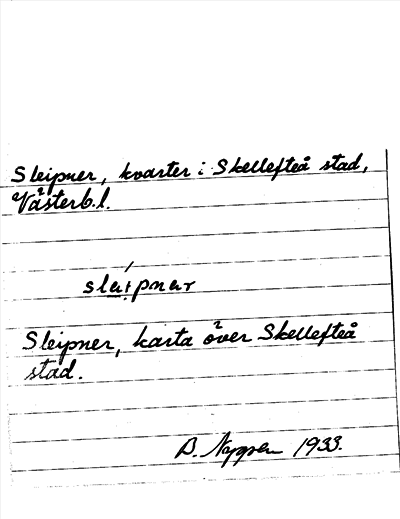 Sleipner, kvarter i Skellefteå stad,
Västerb.l.
Sleipner, karta över Skellefteå
stad.
B. 1933.